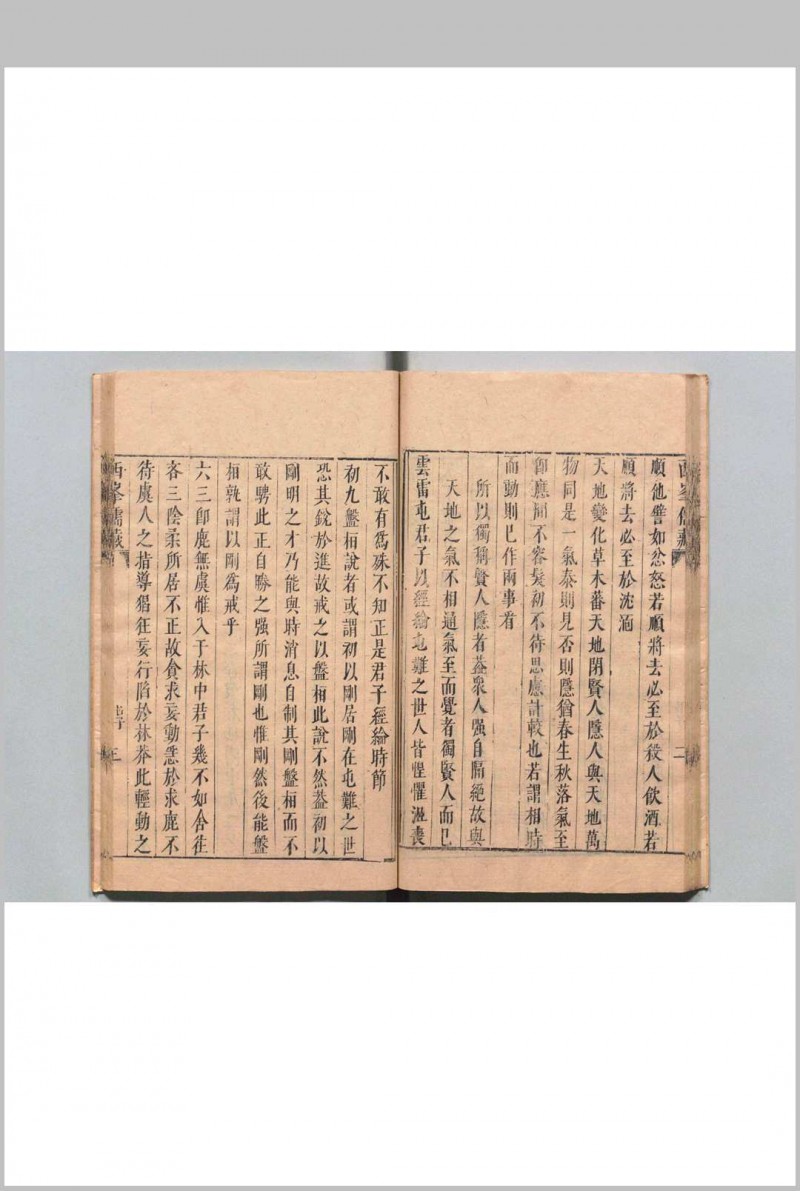 順他譬如忿怒若順將去必至於殺人飲酒若
順將去必至於沈湎
天地變化草木蕃天地閉賢人隱人與天地萬
物同是一氣泰則見否則隱猶春生秋落氣至
即應間不容髮初不待思慮計較也若謂相時
而動則已作兩事看
所以獨稱賢人隱者蓋衆人强自隔絕故與
天地之氣不相通氣至而覺者獨賢人而已
雲雷屯君子以經綸屯難之世人皆惶懼沮喪
二
不敢有爲殊不知正是君子經綸時節
初九盤桓說者或謂初以剛居剛在屯難之世
恐其銳於進故戒之以盤桓此說不然蓋初以
剛明之才乃能與時消息自制其剛盤桓而不
敢騁此正自勝之强所謂剛也惟剛然後能盤
桓孰謂以剛爲戒乎
六三即鹿無虞惟入于林中君子幾不如舍往
吝三陰柔所居不正故貪求妄動急於求鹿不
待虞人之指導猖狂妄行陷於林莽此輕動之
西峯儒藏
三